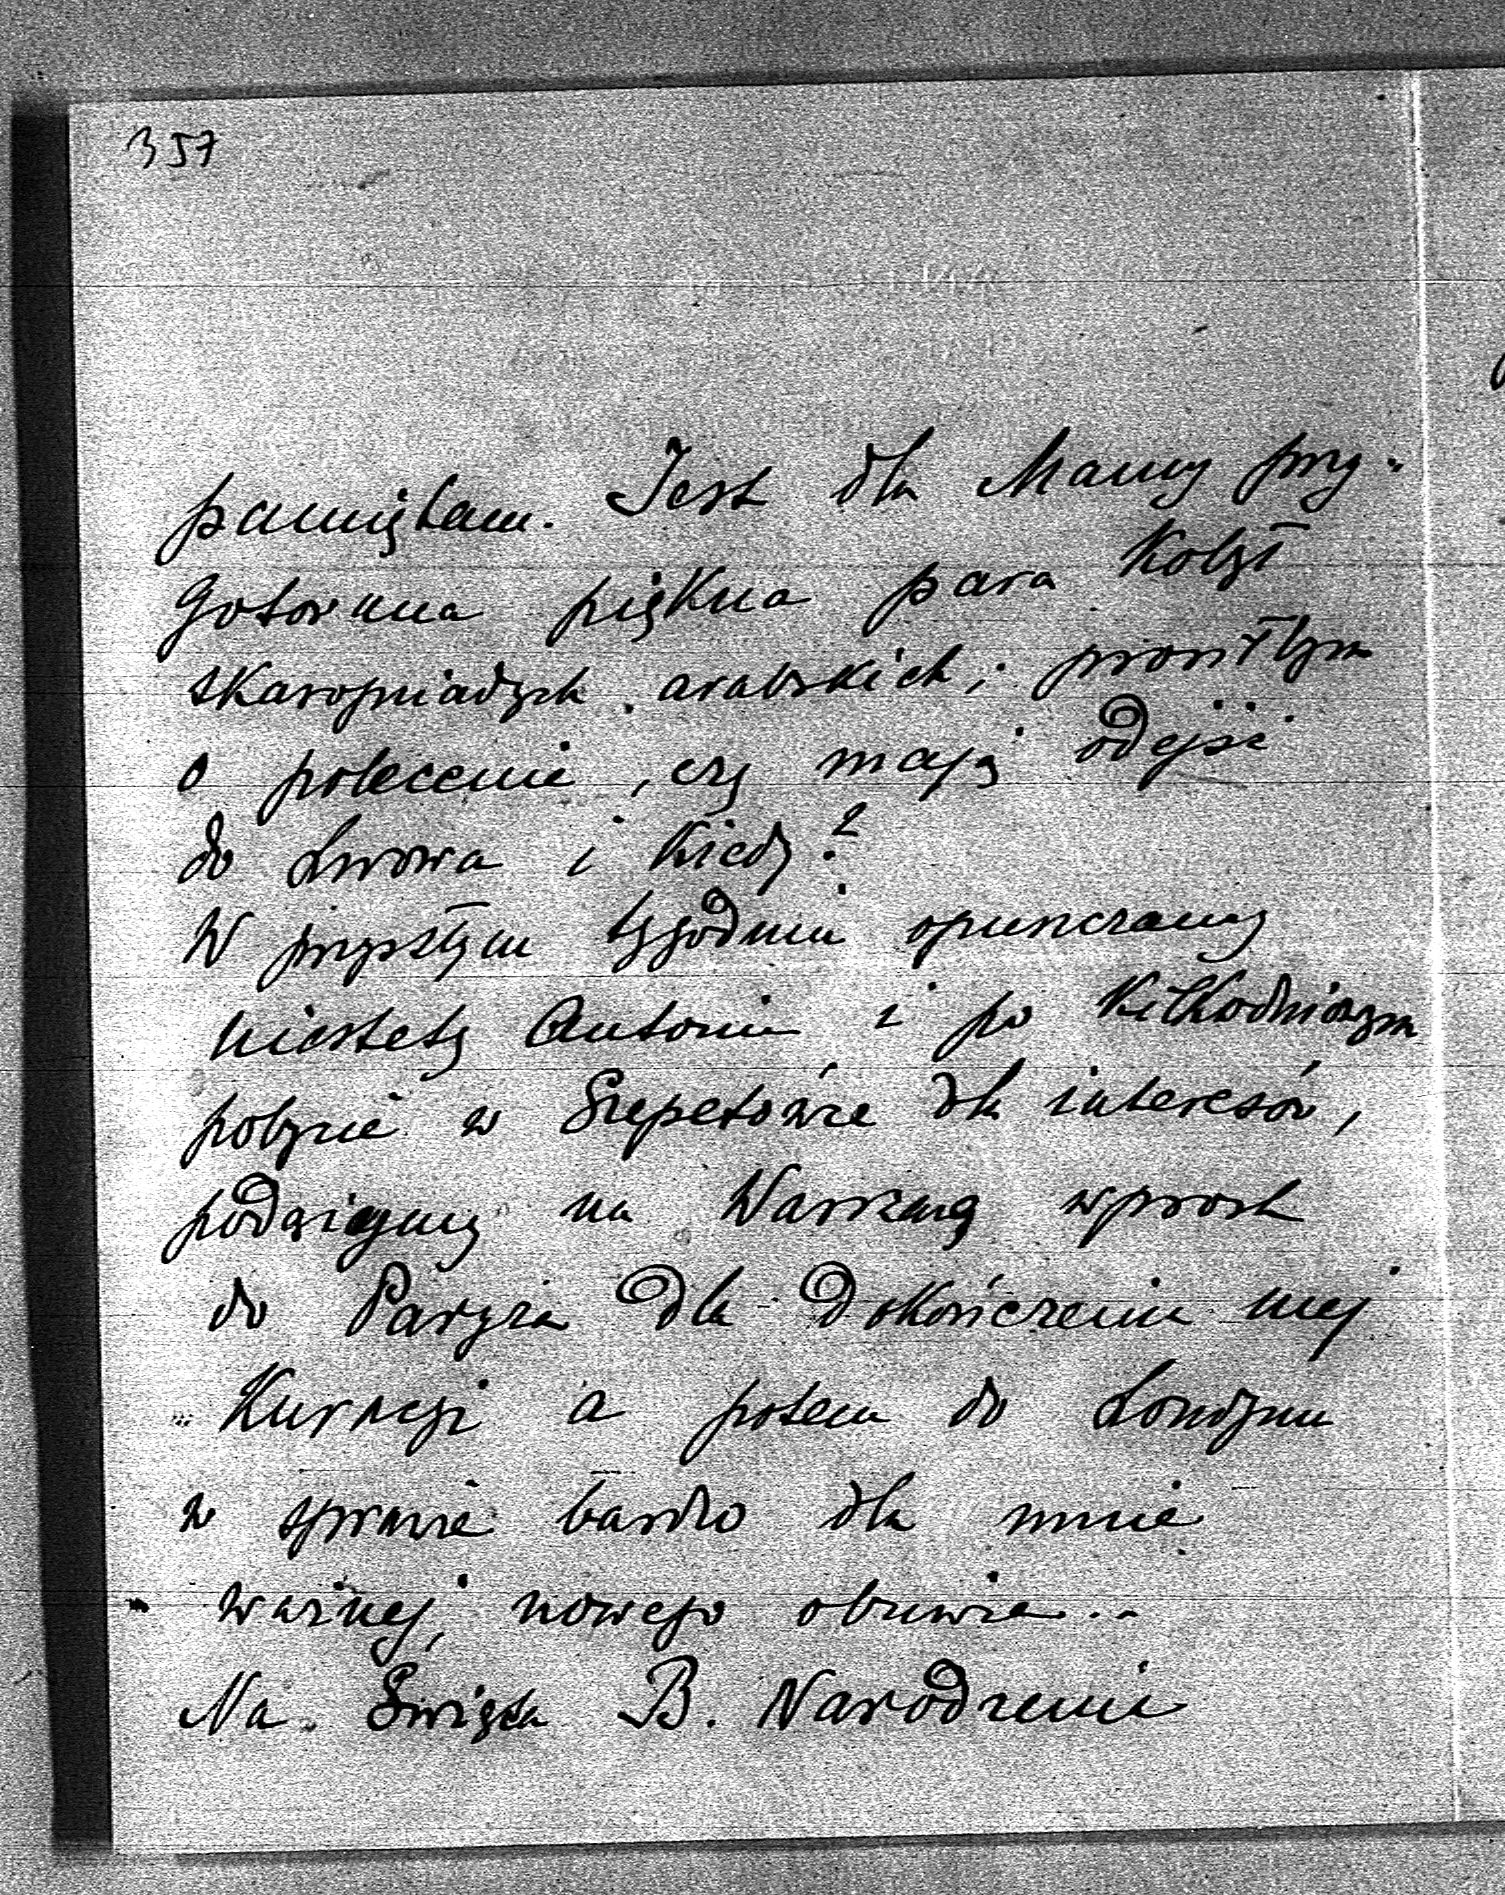 357
pamiętam. Jest dla Mamy przy-
gotowana piękna para kobył
skarogniadych arabskich; prosiłbym
o polecenie, czy mają odejść
do Lwowa i kiedy?
W przyszłym tygodniu opuszczamy
niestety Antonin i po kilkodniowym
pobycie w Szepetówce dla interesów,
podążamy na Warszawę wprost
do Paryża dla dokończenia mej
kuracji a potem do Londynu
w sprawie bardzo dla mnie
ważnej, nowego obuwia..
Na Święta B. Narodzenia